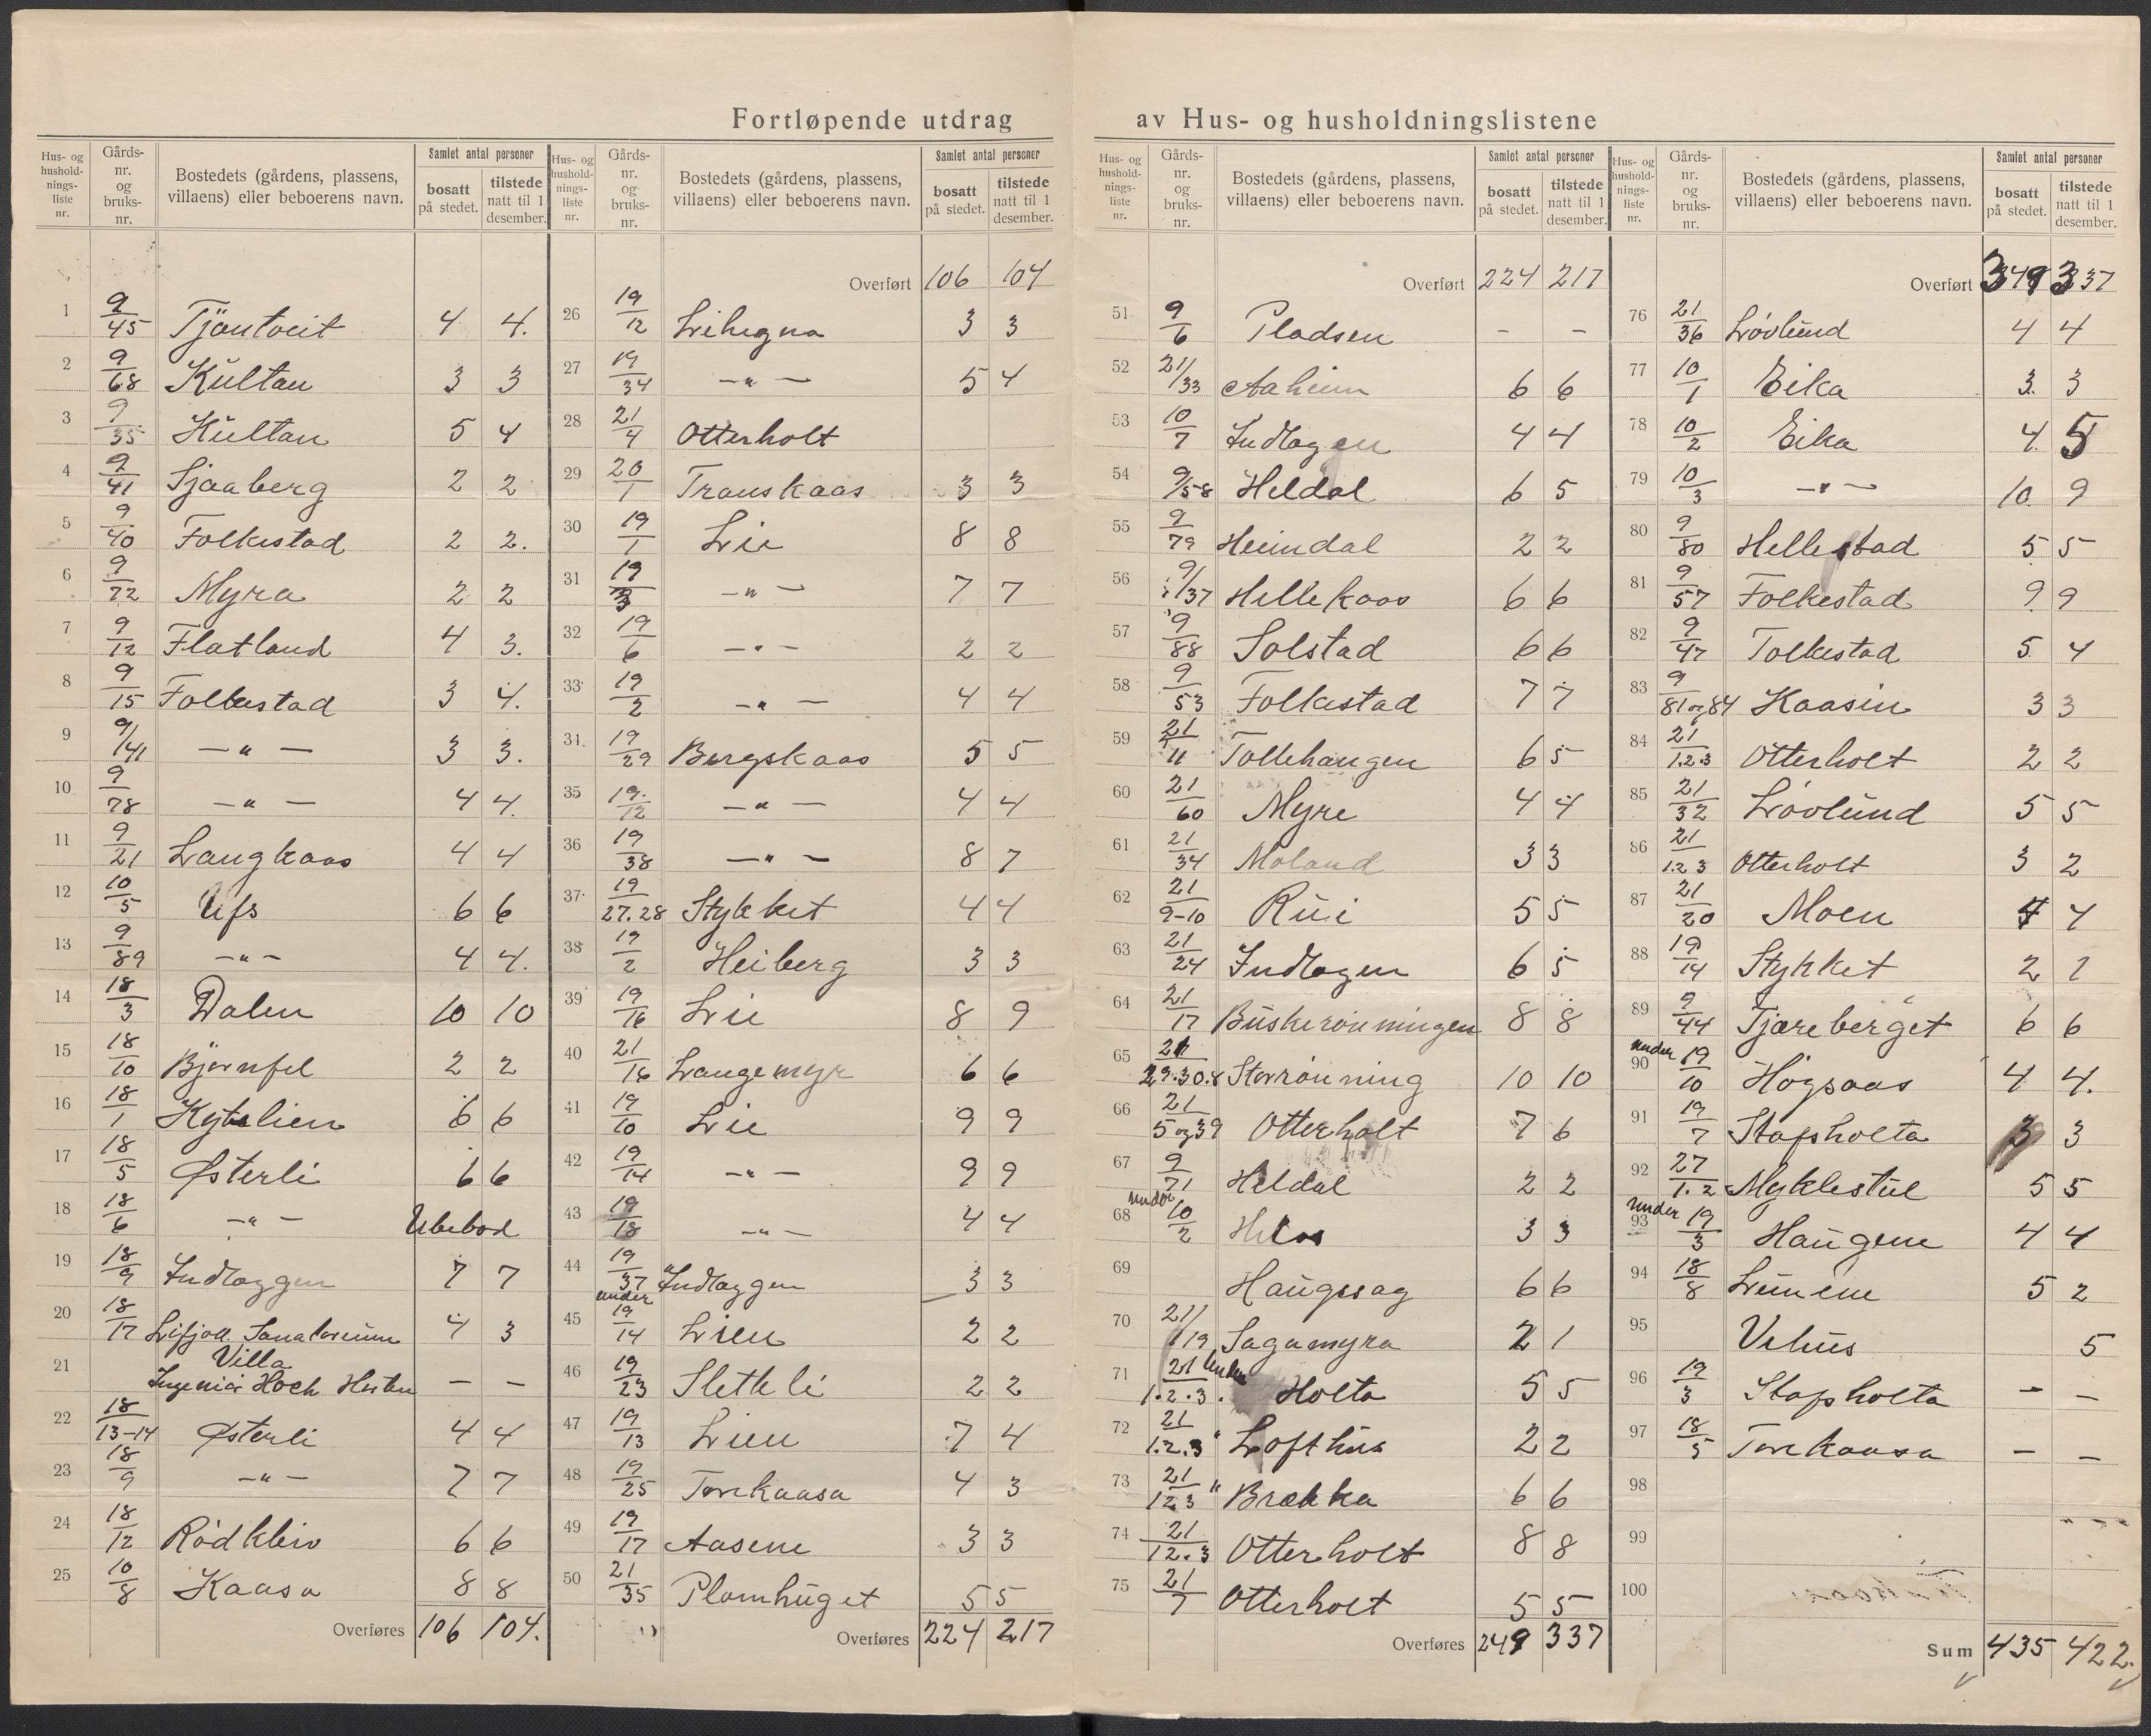 Fortløpende utdrag av Hus- og husholdningslistene
Hus- og husholdnings-liste nr. Gårds-nr. og bruks-nr. Bostedets (gårdens, plassens, villaens) eller beboerens navn. Samlet antal personer bosatt på stedet. tilstede natt til 1 desember.
1 9/45 Tjöntveit 4 4.
2 9/68 Kultan 3 3
3 9/35 Kultan 5 4
4 9/41 Sjaaberg 2 2
5 9/40 Folkestad 2 2.
6 9/72 Myra 2 2
7 9/12 Flatland 4 3.
8 9/15 Folkestad 3 4.
9 9/141 —"— 3 3.
10 9/78 —"— 4 4.
11 9/21 Langkaas 4 4
12 10/5 Ufs 6 6
13 9/89 —"— 4 4.
14 18/3 Dalen 10 10
15 18/10 Bjørnfel 2 2
16 18/1 Kytelien 6 6
17 18/5 Østerli 6 6
18 18/6 —"— Ubebod
19 18/9 Indlæggen 7 7
20 18/17 Lifjell Sanatorium 4 3
21 Villa Ingeniør Hoch — —
22 18/13-14 Østerli 4 4
23 18/9 —"— 7 7
24 18/12 Rødkleiv 6 6
25 10/8 Kaasa 8 8
Overføres 106 104.
Hus- og husholdnings-liste nr. Gårds-nr. og bruks-nr. Bostedets (gårdens, plassens, villaens) eller beboerens navn. Samlet antal personer bosatt på stedet. tilstede natt til 1 desember.
Overført 106 104
26 19/12 Lihegna 3 3
27 19/34 —"— 5 4
28 21/4 Otterholt
29 20/1 Transkaas 3 3
30 19/1 Lie 8 8
31 19/3 —"— 7 7
32 19/6 —"— 2 2
33 19/2 —"— 4 4
34 19/29 Bergskaas 5 5
35 19/12 —"— 4 4
36 19/38 —"— 8 7
37 19/27.28 Stykket 4 4
38 19/2 Heiberg 3 3
39 19/16 Lie 8 9
40 21/16 Langemyr 6 6
41 19/10 Lie 9 9
42 19/14 —"— 9 9
43 19/18 —"— 4 4
44 19/37 Indlæggen 3 3
45 under 19/14 Lien 2 2
46 19/23 Sletteli 2 2
47 19/13 Lien 7 4
48 19/25 Torekaasa 4 3
49 19/17 Aasene 3 3
50 21/35 Plomhuget 5 5
Overføres 224 217
Hus- og husholdnings-liste nr. Gårds-nr. og bruks-nr. Bostedets (gårdens, plassens, villaens) eller beboerens navn. Samlet antal personer bosatt på stedet. tilstede natt til 1 desember.
Overført 224 217
51 9/6 Pladsen — —
52 21/33 Aaheim 6 6
53 10/7 Indlægen 4 4
54 9/58 Heldal 6 5
55 9/79 Heimdal 2 2
56 9/37 Hellekaas 6 6
57 9/88 Solstad 6 6
58 9/53 Folkestad 7 7
59 21/11 Tollehaugen 6 5
60 21/60 Myre 4 4
61 21/34 Moland 3 3
62 21/9-10 Rui 5 5
63 21/24 Indlægen 6 5
64 21/17 Buskerönningen 8 8
65 21/29.30.8 Storrönning 10 10
66 21/5 og 39 Otterholt 7 6
67 9/71 Heldal 2 2
68 under 10/2 3 3
69 Haugssag 6 6
70 21/119 Sagamyra 2 1
71 21/1.2.3. under Holta 5 5
72 21/1.2.3 " Lofthus 2 2
73 21/1 2.3 " Brækka 6 6
74 21/12.3 Otterholt 8 8
75 21/7 Otterholt 5 5
Overføres 249 337
Hus- og husholdnings-liste nr. Gårds-nr. og bruks-nr. Bostedets (gårdens, plassens, villaens) eller beboerens navn. Samlet antal personer bosatt på stedet. tilstede natt til 1 desember.
Overført 349 337
76 21/36 Løvlund 4 4
77 10/1 Eika 3. 3
78 10/2 Eika 4. 5
79 10/3 —"— 10. 9
80 9/80 Hellestad 5 5
81 9/57 Folkestad 9 9
82 9/47 Folkestad 5 4
83 9/81 og 84 Kaasin 3 3
84 21/1.2.3 Otterholt 2 2
85 21/32 Løvlund 5 5
86 21/1.2 3 Otterholt 3 2
87 21/20 Moen 4 4
88 19/14 Stykket 2 1
89 9/44 Tjæreberget 6 6
90 under 19/10 Högsaas 4 4.
91 19/7 Stafsholta 3 3
92 27/1.2 Myklestul 5 5
93 under 19/3 Haugene 4 4
94 18/8 Lunene 5 2
95 Vehus 5
96 19/3 Stafsholta — —
97 18/5 Torekaasa — —
98
99
100
Sum 435 422.